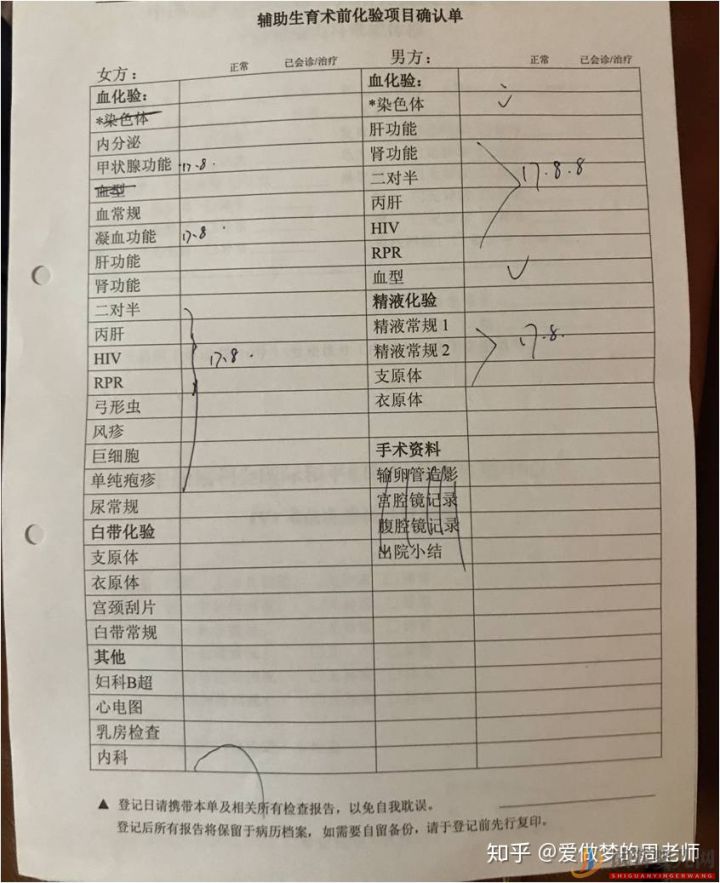 辅助生育术前化验项目确认单
女方： 正常 已会诊/治疗 男方： 正常 已会诊/治疗
血化验： 血化验：
*染色体 *染色体 ✓
内分泌 肝功能
甲状腺功能 17.8. 肾功能
血型 二对半 17.8.8
血常规 丙肝
凝血功能 17.8. HIV
肝功能 RPR
肾功能 血型 ✓
二对半 精液化验
丙肝 精液常规 1
HIV 17.8. 精液常规 2 17.8.
RPR 支原体
弓形虫 衣原体
风疹
巨细胞 手术资料
单纯疱疹 输卵管造影
尿常规 宫腔镜记录
白带化验 腹腔镜记录
支原体 出院小结
衣原体
宫颈刮片
白带常规
其他
妇科B超
心电图
乳房检查
内科
▲ 登记日请携带本单及相关所有检查报告，以免自我耽误。
登记后所有报告将保留于病历档案，如需要自留备份，请于登记前先行复印。
知乎 @爱做梦的周老师
SHIGUANYINGERWANG